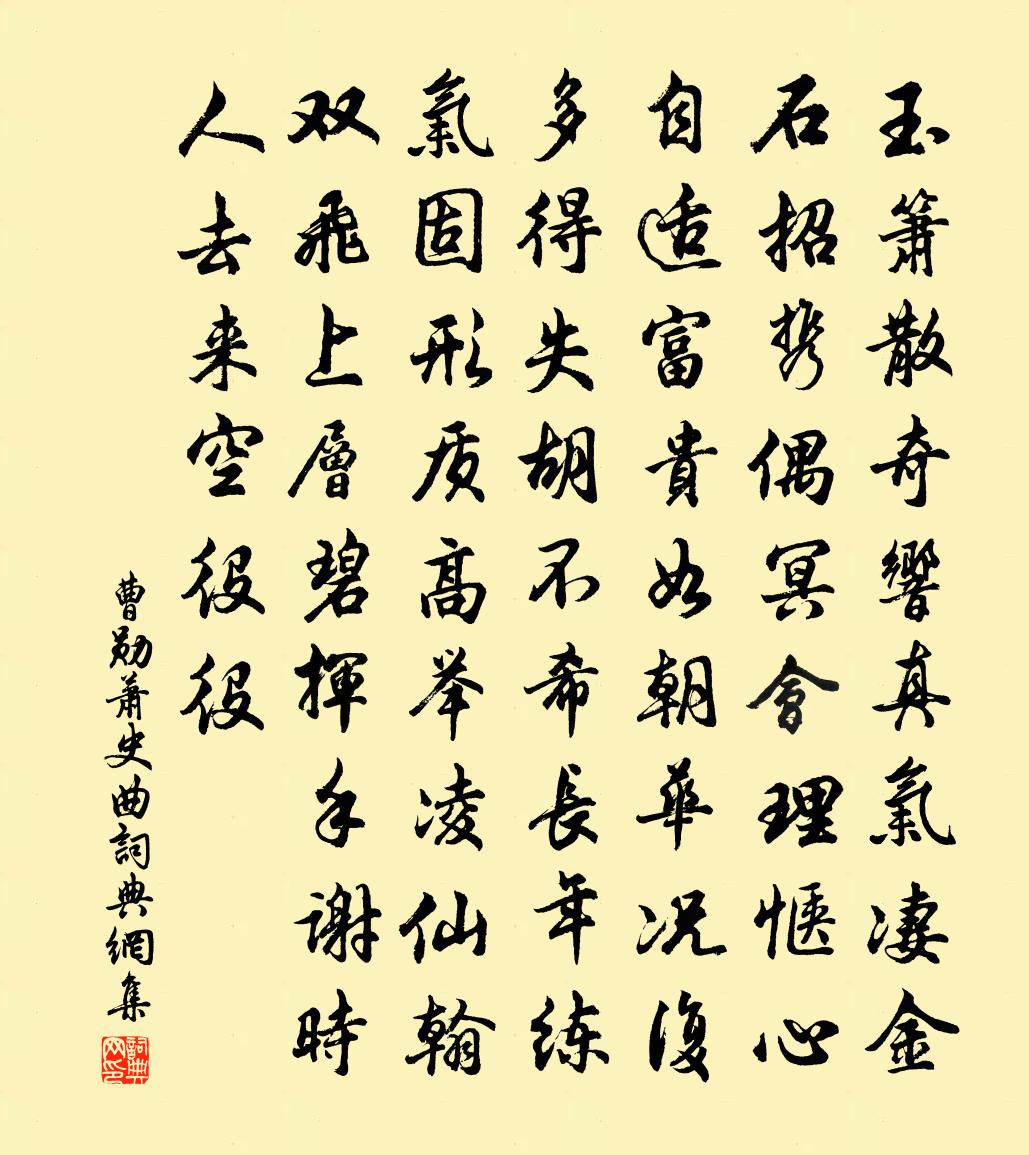 玉箫散奇響真氣凄金
石招携偶冥會理惬心
自适富貴如朝華况復
多得失胡不希長年练
氣固形质高举凌仙翰
双飛上層碧揮手谢時
人去来空役役
曹勋萧史曲詞典網集
詞典网印